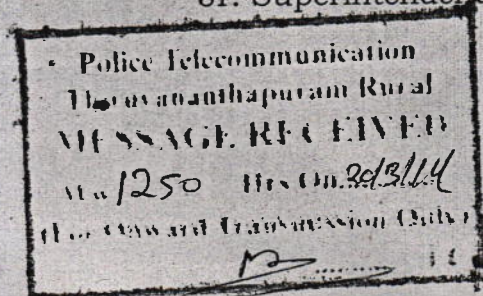 Sr. Superintendent
Police Telecommunication
Thiruvananthapuram Rural
MESSAGE RECEIVED
At 1250 Hrs On
(For Onward Transmission Only)